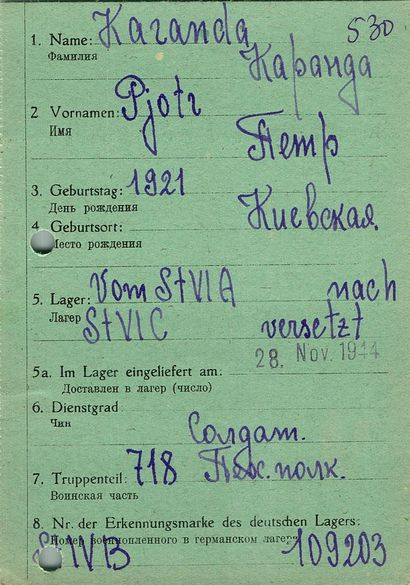 1. Name: Karanda 530
Фамилия Каранда
2 Vornamen: Pjotr
Имя Петр
3. Geburtstag: 1921
День рождения
4. Geburtsort: Киевская
Место рождения
5. Lager: Vom St VI A nach
Лагер St VI C versetzt
28. Nov. 1944
5a. Im Lager eingeliefert am:
Доставлен в лагер (число)
6. Dienstgrad
Чин Солдат.
7. Truppenteil: 718 Пех. полк.
Воинская часть
8. Nr. der Erkennungsmarke des deutschen Lagers:
Номер военнопленного в германском лагере
St IV B 109203